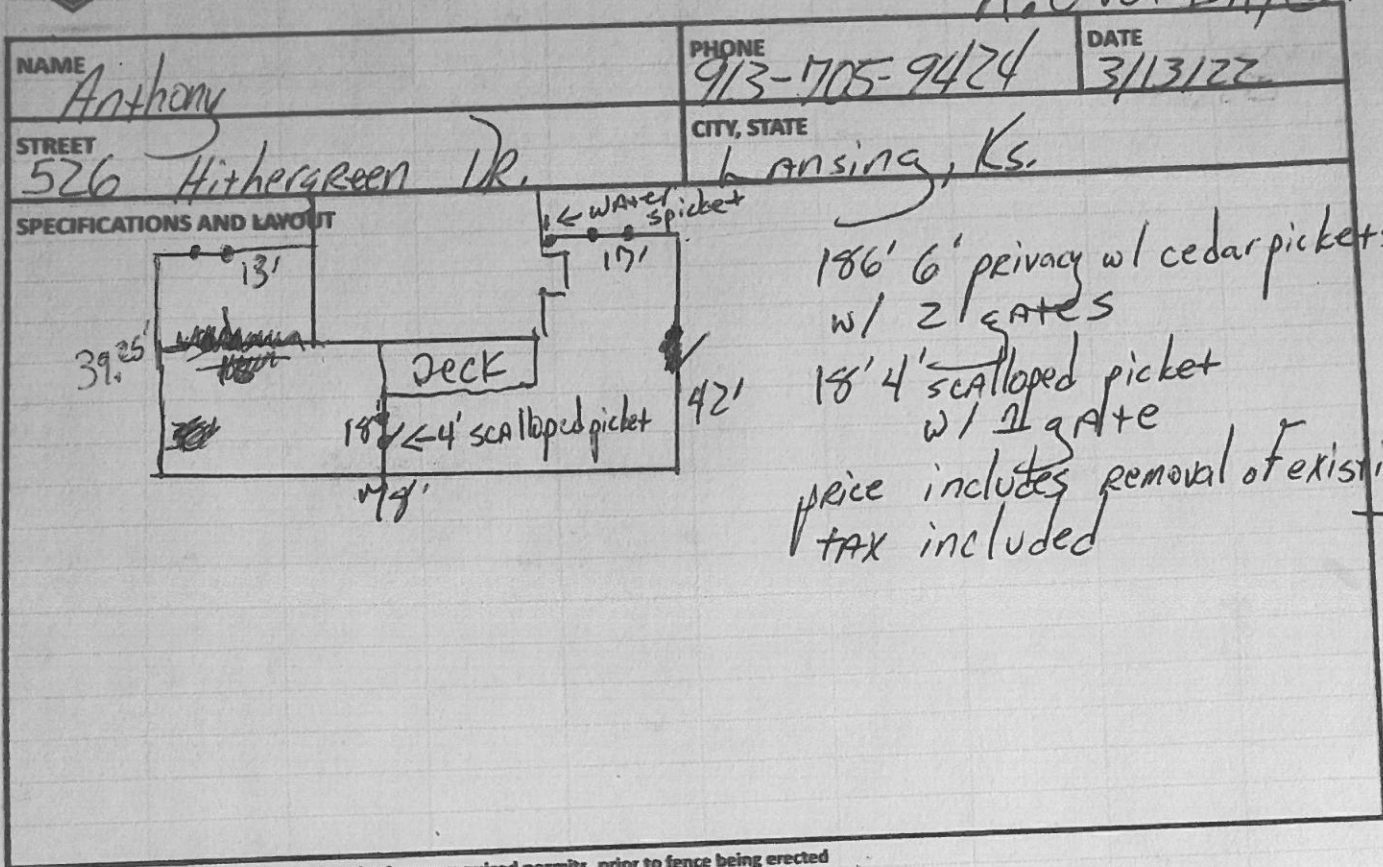 NAME
Anthony
PHONE
913-705-9424
DATE
3/13/22
STREET
526 Hithergreen DR.
CITY, STATE
Lansing, Ks.
SPECIFICATIONS AND LAYOUT
← WAter
spicket
13'
17'
39.25'
Deck
42'
18'
← 4' SCAlloped picket
78'
186' 6' privacy w/ cedar pickets
w/ 2 gAtes
18' 4' SCAlloped picket
w/ 1 gAte
price includes Removal of
tAX included
permits, prior to fence being erected